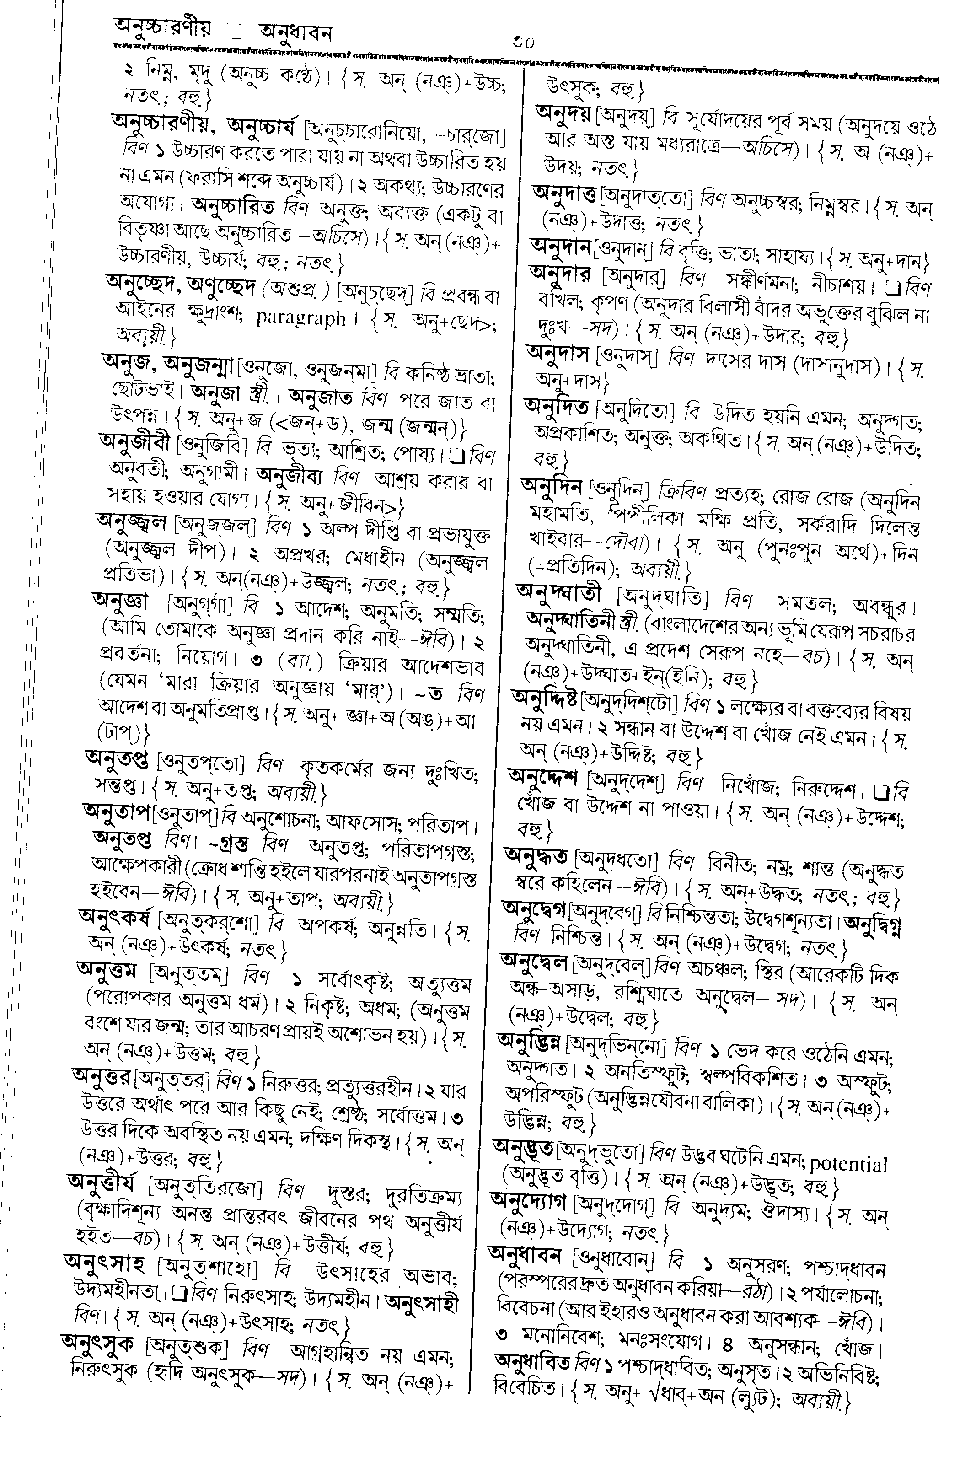 অনুচ্চারণীয় – অনুধাবন
৩০
২ নিম্ন, মৃদু (অনুচ্চ কণ্ঠে)। {স. অন্ (নঞ্)+উচ্চ;
নতৎ; বহু.}
অনুচ্চারণীয়, অনুচ্চার্য [অনুচ্‌চারোনিয়ো, –চার্‌জো]
বিণ ১ উচ্চারণ করতে পারা যায় না অথবা উচ্চারিত হয়
না এমন (ফরাসি শব্দে অনুচ্চার্য)। ২ অকথ্য; উচ্চারণের
অযোগ্য। অনুচ্চারিত বিণ অনুক্ত; অব্যক্ত (একটু বা
বিতৃষ্ণা আছে অনুচ্চারিত –অচিসে)। {স. অন্ (নঞ্)+
উচ্চারণীয়, উচ্চার্য; বহু.; নতৎ}
অনুচ্ছেদ, অণুচ্ছেদ (অশুপ্র.) [অনুচ্‌ছেদ্] বি প্রবন্ধ বা
আইনের ক্ষুদ্রাংশ; paragraph। {স. অনু+ছেদ>;
অব্যয়ী.}
অনুজ, অনুজন্মা [ওনুজো, ওনুজন্‌মা] বি কনিষ্ঠ ভ্রাতা;
ছোটভাই। অনুজা স্ত্রী.। অনুজাত বিণ পরে জাত বা
উৎপন্ন। {স. অনু+জ (<জন্+ড), জন্ম (জন্মন্)}
অনুজীবী [ওনুজিবি] বি ভৃত্য; আশ্রিত; পোষ্য। ❑ বিণ
অনুবর্তী; অনুগামী। অনুজীব্য বিণ আশ্রয় করার বা
সহায় হওয়ার যোগ্য। {স. অনু+জীবিন>}
অনুজ্জ্বল [অনুজ্‌জল্] বিণ ১ অল্প দীপ্তি বা প্রভাযুক্ত
(অনুজ্জ্বল দীপ)। ২ অপ্রখর; মেধাহীন (অনুজ্জ্বল
প্রতিভা)। {স. অন্(নঞ্)+উজ্জ্বল; নতৎ; বহু.}
অনুজ্ঞা [অনুগ্‌গাঁ] বি ১ আদেশ; অনুমতি; সম্মতি;
(আমি তোমাকে অনুজ্ঞা প্রদান করি নাই--ঈবি)। ২
প্রবর্তনা; নিয়োগ। ৩ (ব্যা.) ক্রিয়ার আদেশভাব
(যেমন ‘মারা ক্রিয়ার অনুজ্ঞায় ‘মার’)। ~ত বিণ
আদেশ বা অনুমতিপ্রাপ্ত। {স. অনু+জ্ঞা+অ(অঙ্)+আ
(টাপ্)}
অনুতপ্ত [ওনুতপ্‌তো] বিণ কৃতকর্মের জন্য দুঃখিত;
সন্তপ্ত। {স. অনু+তপ্ত; অব্যয়ী.}
অনুতাপ[ওনুতাপ্] বি অনুশোচনা; আফসোস; পরিতাপ।
অনুতপ্ত বিণ। ~গ্রস্ত বিণ অনুতপ্ত; পরিতাপগ্রস্ত;
আক্ষেপকারী (ক্রোধ শান্তি হইলে যারপরনাই অনুতাপগ্রস্ত
হইবেন—ঈবি)। {স. অনু+তাপ; অব্যয়ী.}
অনুৎকর্ষ [অনুত্‌কর্‌শো] বি অপকর্ষ; অনুন্নতি। {স.
অন্ (নঞ্)+উৎকর্ষ; নতৎ}
অনুত্তম [অনুত্‌তম্] বিণ ১ সর্বোৎকৃষ্ট; অত্যুত্তম
(পরোপকার অনুত্তম ধর্ম)। ২ নিকৃষ্ট; অধম; (অনুত্তম
বংশে যার জন্ম; তার আচরণ প্রায়ই অশোভন হয়)। {স.
অন্ (নঞ্)+উত্তম; বহু}
অনুত্তর [অনুত্‌তর্] বিণ ১ নিরুত্তর; প্রত্যুত্তরহীন। ২ যার
উত্তরে অর্থাৎ পরে আর কিছু নেই; শ্রেষ্ঠ; সর্বোত্তম। ৩
উত্তর দিকে অবস্থিত নয় এমন; দক্ষিণ দিকস্থ। {স. অন্
(নঞ্)+উত্তর; বহু}
অনুত্তীর্য [অনুত্‌তির্‌জো] বিণ দুস্তর; দুরতিক্রম্য
(বৃক্ষাদিশূন্য অনন্ত প্রান্তরবৎ জীবনের পথ অনুত্তীর্য
হইত—বচ)। {স. অন্ (নঞ্)+উত্তীর্য; বহু}
অনুৎসাহ [অনুত্‌শাহো] বি উৎসাহের অভাব;
উদ্যমহীনতা। ❑ বিণ নিরুৎসাহ; উদ্যমহীন। অনুৎসাহী
বিণ। {স. অন্ (নঞ্)+উৎসাহ; নতৎ}
অনুৎসুক [অনুত্‌শুক] বিণ আগ্রহান্বিত নয় এমন;
নিরুৎসুক (হৃদি অনুৎসুক—সদ)। {স. অন্ (নঞ্)+
উৎসুক; বহু.}
অনুদয় [অনুদয়্] বি সূর্যোদয়ের পূর্ব সময় (অনুদয়ে ওঠে
আর অস্ত যায় মধ্যরাত্রে—অচিসে)। {স. অ (নঞ্)+
উদয়; নতৎ}
অনুদাত্ত [অনুদাত্‌তো] বিণ অনুচ্চস্বর; নিম্নস্বর। {স. অন্
(নঞ্)+উদাত্ত; নতৎ}
অনুদান [ওনুদান্] বি বৃত্তি; ভাতা; সাহায্য। {স. অনু+দান}
অনুদার [অনুদার্] বিণ সঙ্কীর্ণমনা; নীচাশয়। ❑ বিণ
বখিল; কৃপণ (অনুদার বিলাসী বাঁদর অভুক্তের বুঝিল না
দুঃখ –সদ)। {স. অন্ (নঞ্)+উদার; বহু}
অনুদাস [ওনুদাস্] বিণ দাসের দাস (দাসানুদাস)। {স.
অনু+দাস}
অনুদিত [অনুদিতো] বি উদিত হয়নি এমন; অনুদ্গত;
অপ্রকাশিত; অনুক্ত; অকথিত। {স. অন্ (নঞ্)+উদিত;
বহু}
অনুদিন [ওনুদিন্] ক্রিবিণ প্রত্যহ; রোজ রোজ (অনুদিন
মহামতি, পিপীলিকা মক্ষি প্রতি, সর্করাদি দিলেন্ত
খাইবার--দৌবা)। {স. অনু (পুনঃপুন অর্থে)+দিন
(–প্রতিদিন); অব্যয়ী.}
অনুদ্ঘাতী [অনুদ্‌ঘাতি] বিণ সমতল; অবন্ধুর।
অনুদ্ঘাতিনী স্ত্রী. (বাংলাদেশের অন্য ভূমি যেরূপ সচরাচর
অনুদ্ঘাতিনী, এ প্রদেশ সেরূপ নহে—বচ)। {স. অন্
(নঞ্)+উদ্ঘাত+ইন্(ইনি); বহু}
অনুদ্দিষ্ট [অনুদ্‌দিশ্‌টো] বিণ ১ লক্ষ্যের বা বক্তব্যের বিষয়
নয় এমন। ২ সন্ধান বা উদ্দেশ বা খোঁজ নেই এমন। {স.
অন্ (নঞ্)+উদ্দিষ্ট; বহু}
অনুদ্দেশ [অনুদ্‌দেশ্] বিণ নিখোঁজ; নিরুদ্দেশ। ❑ বি
খোঁজ বা উদ্দেশ না পাওয়া। {স. অন্ (নঞ্)+উদ্দেশ;
বহু}
অনুদ্ধত [অনুদ্‌ধতো] বিণ বিনীত; নম্র; শান্ত (অনুদ্ধত
স্বরে কহিলেন –ঈবি)। {স. অন্+উদ্ধত; নতৎ; বহু}
অনুদ্বেগ [অনুদ্‌বেগ] বি নিশ্চিন্ততা; উদ্বেগশূন্যতা। অনুদ্বিগ্ন
বিণ নিশ্চিন্ত। {স. অন্ (নঞ্)+উদ্বেগ; নতৎ}
অনুদ্বেল [অনুদ্‌বেল্] বিণ অচঞ্চল; স্থির (আরেকটি দিক
অন্ধ-অসাড়, রশ্মিঘাতে অনুদ্বেল–সদ)। {স. অন্
(নঞ্)+উদ্বেল; বহু}
অনুদ্ভিন্ন [অনুদ্‌ভিন্‌নো] বিণ ১ ভেদ করে ওঠেনি এমন;
অনুদ্গত। ২ অনতিস্ফুট; স্বল্পবিকশিত। ৩ অস্ফুট;
অপরিস্ফুট (অনুদ্ভিন্নযৌবনা বালিকা)। {স. অন্(নঞ্)+
উদ্ভিন্ন; বহু}
অনুদ্ভূত [অনুদ্‌ভুতো] বিণ উদ্ভব ঘটেনি এমন; potential
(অনুদ্ভূত বৃত্তি)। {স. অন্ (নঞ্)+উদ্ভূত; বহু}
অনুদ্যোগ [অনুদ্‌দোগ্] বি অনুদ্যম; ঔদাস্য। {স. অন্
(নঞ্)+উদ্যোগ; নতৎ}
অনুধাবন [ওনুধাবোন্] বি ১ অনুসরণ; পশ্চাদ্ধাবন
(পরস্পরের দ্রুত অনুধাবন করিয়া—রঠা)। ২ পর্যালোচনা;
বিবেচনা (আর ইহারও অনুধাবন করা আবশ্যক –ঈবি)।
৩ মনোনিবেশ; মনঃসংযোগ। ৪ অনুসন্ধান; খোঁজ।
অনুধাবিত বিণ ১ পশ্চাদ্ধাবিত; অনুসৃত। ২ অভিনিবিষ্ট;
বিবেচিত। {স. অনু+ √ধাব্+অন (ল্যুট); অব্যয়ী.}